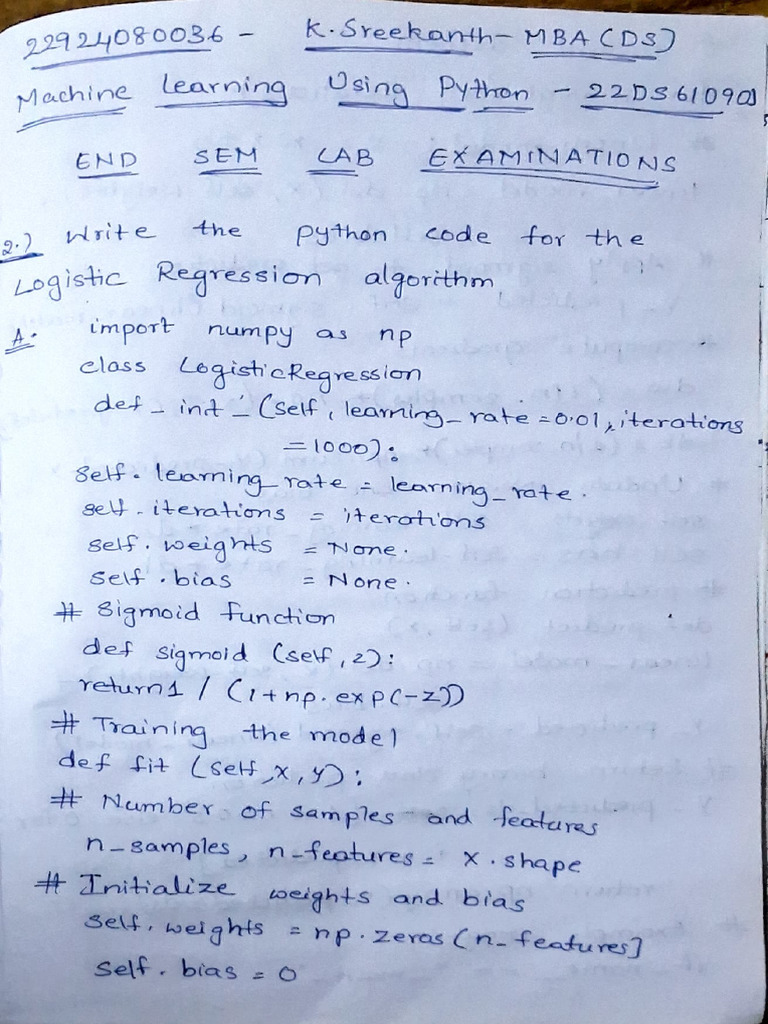 22924080036 - K. Sreekanth - MBA (DS)
Machine Learning Using Python - 22DS610901
END SEM LAB EXAMINATIONS
2.) Write the python code for the
Logistic Regression algorithm
A:- import numpy as np
class LogisticRegression
def _ init _ (self, learning_rate = 0.01, iterations
= 1000):
self. learning_rate = learning_rate.
self. iterations = iterations
self. weights = None.
self. bias = None.
# Sigmoid function
def sigmoid (self, z):
return 1 / (1 + np. exp(-z))
# Training the model
def fit (self, x, y):
# Number of samples and features
n_samples, n_features = x. shape
# Initialize weights and bias
self. weights = np. zeros (n_features]
self. bias = 0